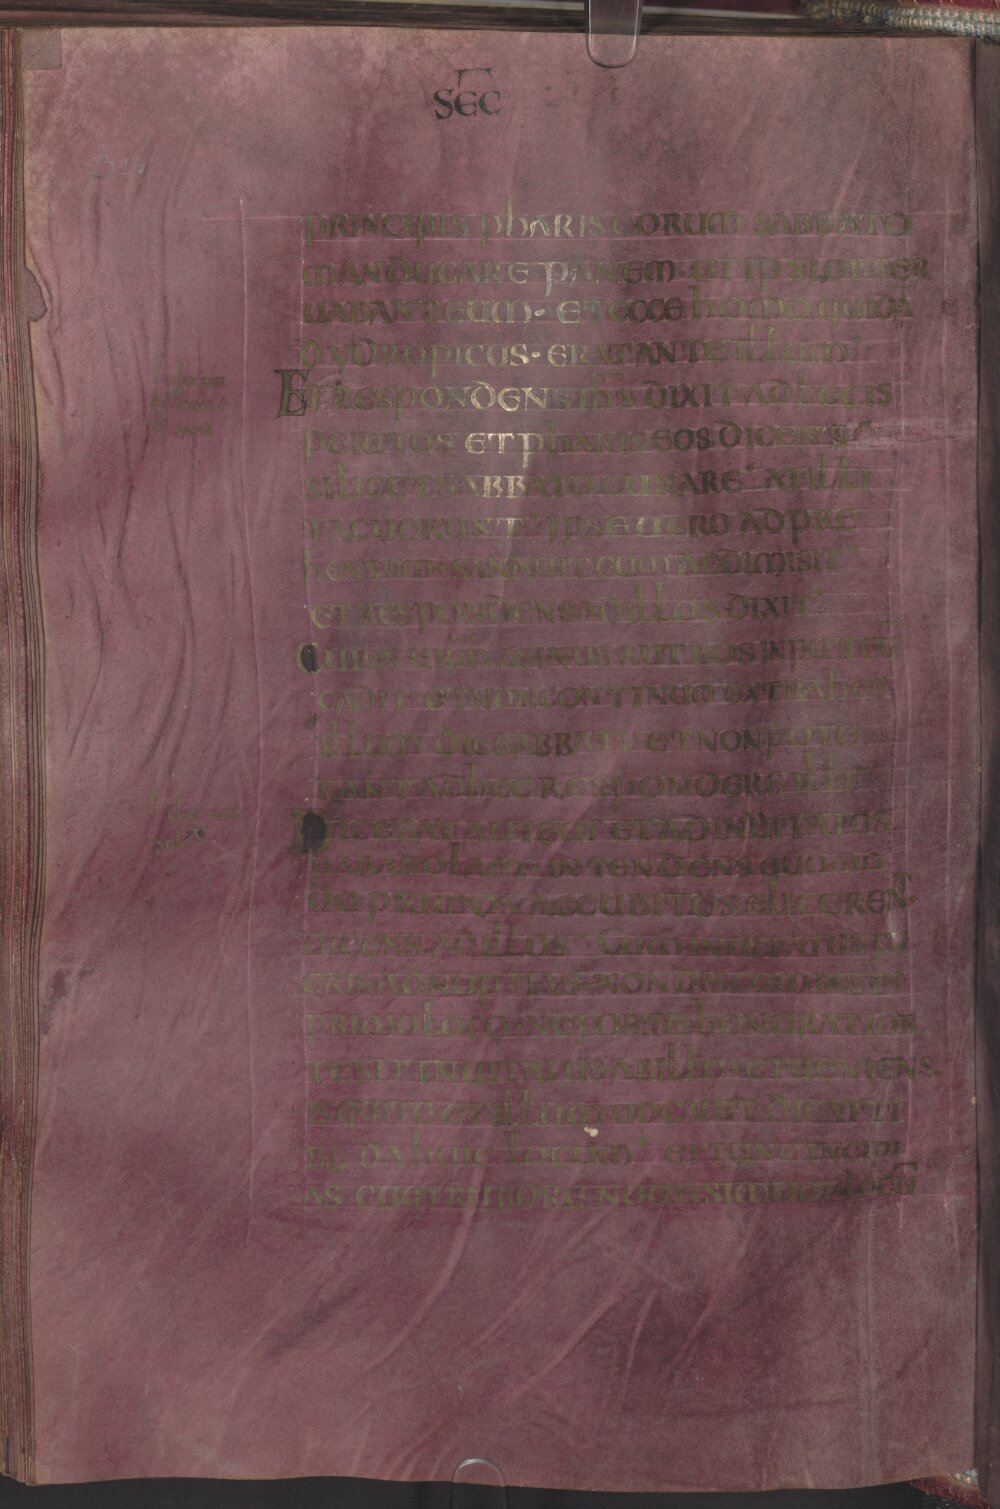 SEC
PRINCIPIS PHARISEORUM SABBATO
MANDUCARE PANEM· ET IPSI OBSER
UABANT EUM· ET ECCE HOMO QUIDA
HYDROPICUS· ERAT ANTE ILLUM
ET RESPONDENS IHS DIXIT AD LEGIS
PERITOS ET PHARISEOS DICENS
SI LICET SABBATO CURARE· AT ILLI
TACUERUNT· IPSE UERO ADPRE
HENSUM SANAUIT EUM AC DIMISIT
ET RESPONDENS AD ILLOS DIXIT
CUIUS ASINUS AUT BOS IN PUTEU
CADIT· ET NON CONTINUO EXTRAHET
ILLUM DIE SABBATI· ET NON POTE
RANT AD HEC RESPONDERE ILLI
DICEBAT AUTEM ET AD INUITATOS
PARABOLAM· INTENDENS QUOMO
DO PRIMOS ACCUBITOS ELIGERENT·
DICENS AD ILLOS· CUM INUITATUS FU
ERIS AD NUPTIAS· NON DISCUMBAS IN
PRIMO LOCO· NE FORTE HONORATIOR
TE SIT INUITATUS AB ILLO· ET UENIENS
IS QUI TE ET ILLUM UOCAUIT DICAT TI
BI· DA HUIC LOCUM· ET TUNC INCIPI
AS CUM RUBORE NOUISSIMUM LOCU